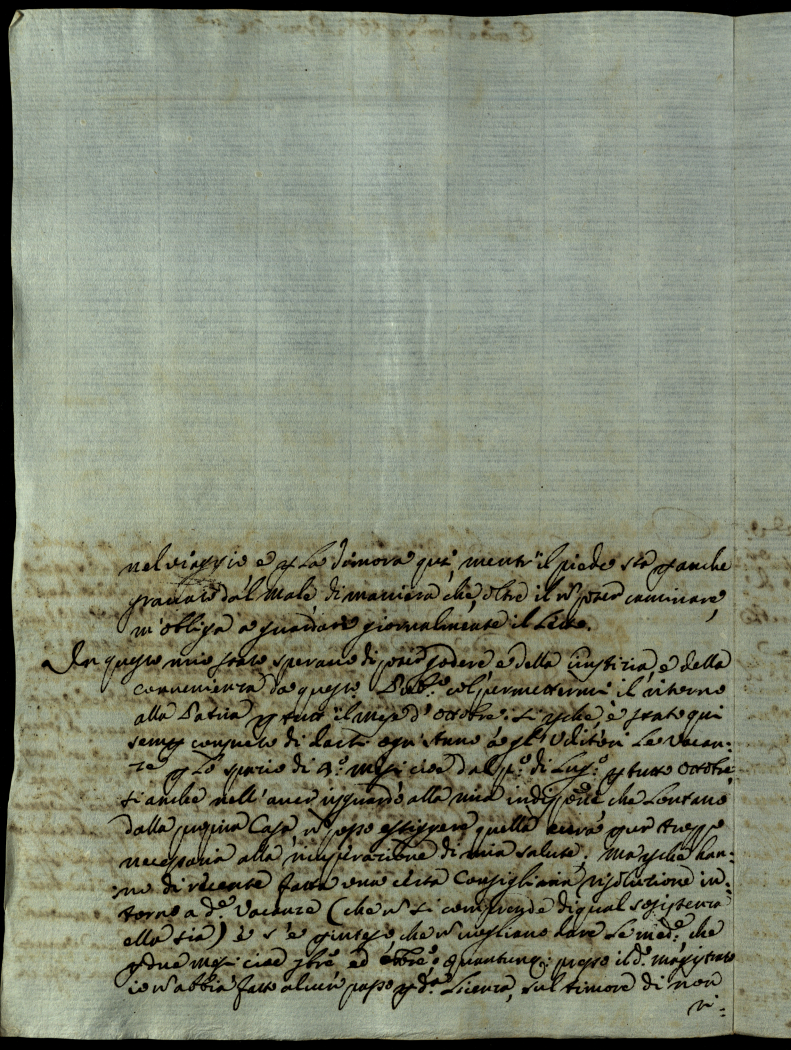 nel viaggio e p la dimora qui, mentr'il piede sta p anche
gravato dal male di maniera che, oltre il n poter caminare,
m'obliga a guardare giornalmente il Letto.
In questo mio stato speravo di poter godere e della Giustizia, e della
convenienza da questo Pub:co col permettermi il ritorno
alla Patria p tutt'il mese d'Ottobre: sì perche è stato qui
sempre consueto di darsi ogn'Anno à gl'Uditori le Vacan:
ze p lo spazio di 4:o mesi cioè dal p:o di Lug:o p tutto Ottobre,
sì anche nell'aver risguardo alla mia indisp:ne che lontano
dalla propria Casa n posso esiggere quella cura pur troppo
necessaria alla ricuperazione di mia salute. Ma perche han:
no di recente fatta una certa Consigliaria risoluzione in:
torno a d:e Vacanze (che n si comprende di qual sosistenza
ella sia) e s'è p inteso che n vogliano dare le med:e, che
p due mesi cioè 7bre, ed 8bre: quantunq: presso il d:o Magistrato
io n abbia fatto alcun passo p d:a Licenza, sul timore di non
ri: